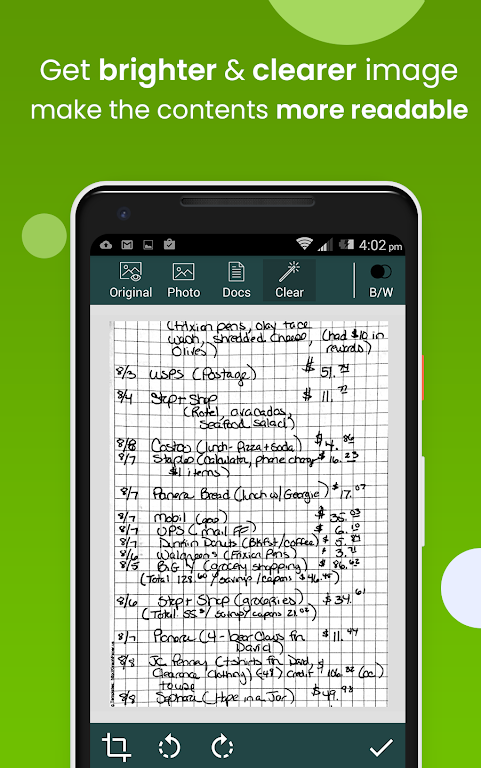 Get brighter & clearer image
make the contents more readable
4:02 pm
Original Photo Docs Clear B/W
(Frixion pens, clay face
wash, shredded cheese, (had $10 in
Olives) rewards)
8/3 USPS (Postage) $ 51.
8/4 Stop + Shop $ 11.
(Rotel, avacados,
seafood salad)
8/8 Costco (lunch - Pizza + Soda) $ 4. 86
8/7 Staples (Calculator, phone charg $ 16. 23
$1 items)
8/7 Panera Bread (lunch w/ Georgie) $ 17. 07
8/7 Mobil (gas) $ 35. 03
8/7 UPS (mail FF) $ 6. 10
8/7 Dunkin Donuts (BkFst/coffee) $ 5. 89
8/6 Walgreens (Frixion Pens) $ 3. 71
8/5 BIG Y (grocery shopping) $ 86. 62
(Total 128.60 / savings/coupons $46.
8/6 Stop + Shop (groceries) $ 34. 61
(Total 55. / savings/coupons 21.02)
8/7 Panera (4 - bear Claws fn $ 11. 44
David)
8/8 JC Penney (tshirts fn David, $
Clearance Clothing) (48) credit 106. 32 (CC)
8/8 Sephora (Hope in a Jar) $ 49. 98